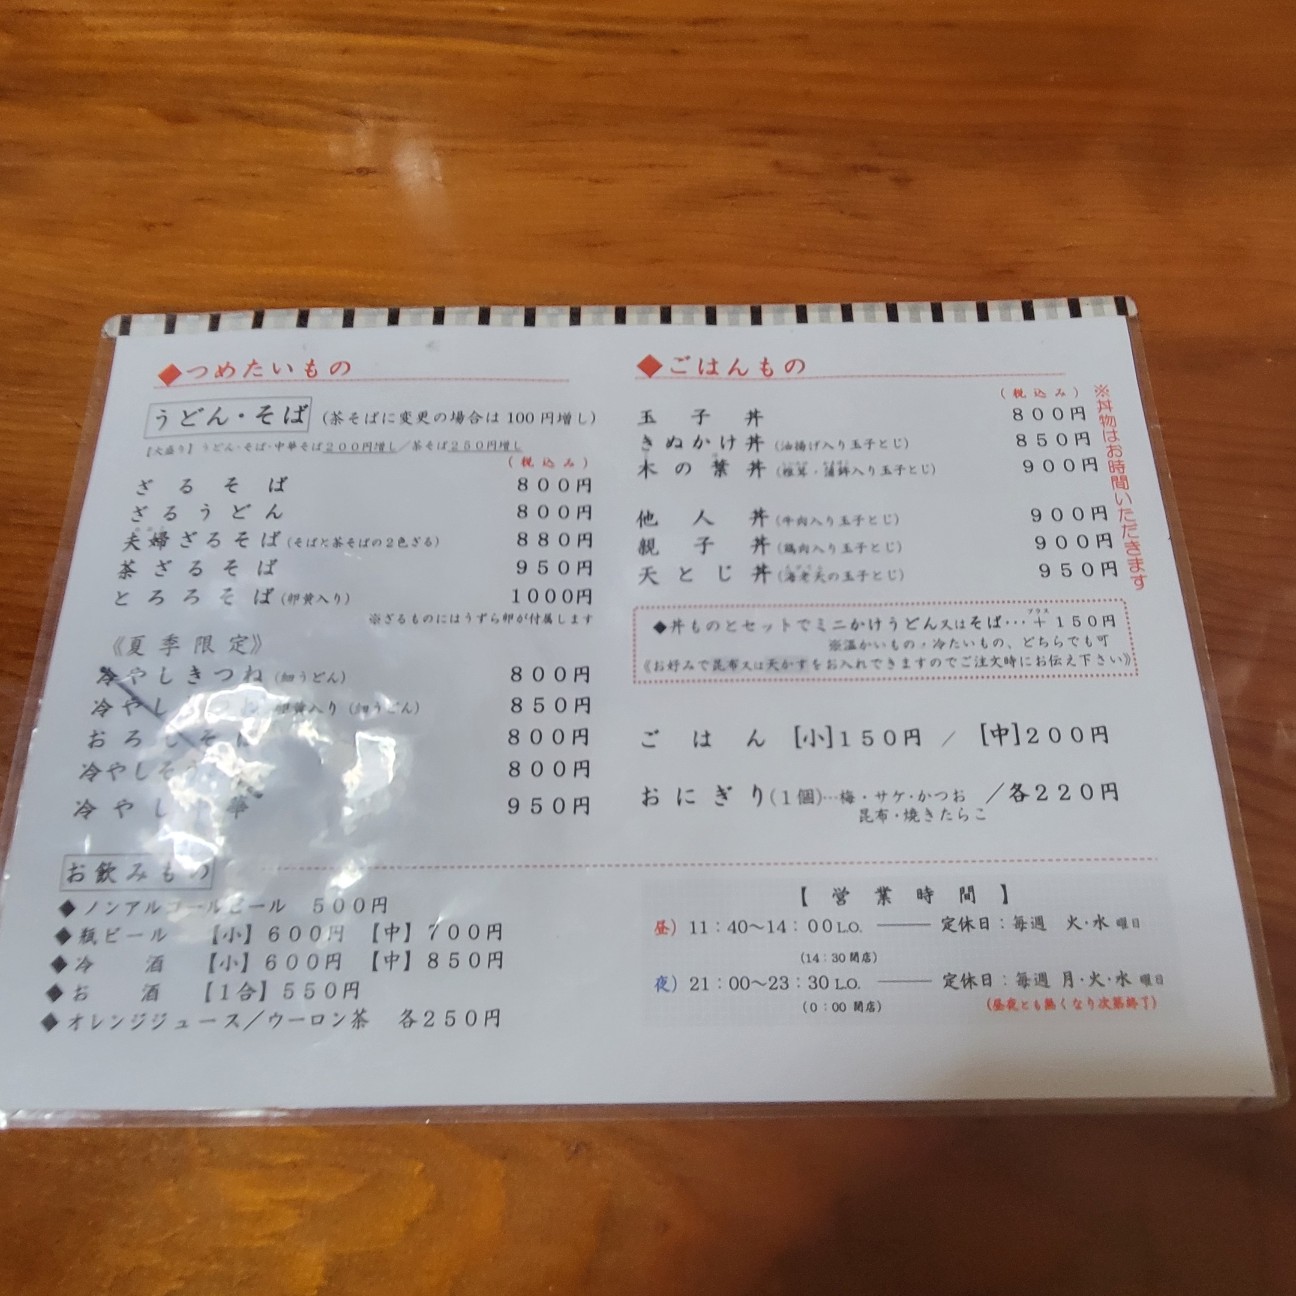 ◆つめたいもの
うどん・そば (茶そばに変更の場合は100円増し)
【大盛り】うどん・そば・中華そば200円増し／茶そば250円増し
(税込み)
ざるそば 800円
ざるうどん 800円
夫婦ざるそば(そばと茶そばの2色ざる) 880円
茶ざるそば 950円
とろろそば(卵黄入り) 1000円
※ざるものにはうずら卵が付属します
《夏季限定》
冷やしきつね(細うどん) 800円
冷やし 卵黄入り(細うどん) 850円
おろしそば 800円
冷やしそ 800円
冷やし 華 950円
お飲みもの
◆ノンアルコールビール 500円
◆瓶ビール 【小】600円 【中】700円
◆冷酒 【小】600円 【中】850円
◆お酒 【1合】550円
◆オレンジジュース／ウーロン茶 各250円
◆ごはんもの
(税込み)
玉子丼 800円
きぬかけ丼(油揚げ入り玉子とじ) 850円
木の葉丼(椎茸・蒲鉾入り玉子とじ) 900円
他人丼(牛肉入り玉子とじ) 900円
親子丼(鶏肉入り玉子とじ) 900円
天とじ丼(海老天の玉子とじ) 950円
※丼物はお時間いただきます
◆丼ものとセットでミニかけうどん又はそば…＋150円
プラス
※温かいもの・冷たいもの、どちらでも可
《お好みで昆布又は天かすをお入れできますのでご注文時にお伝え下さい》
ごはん [小]150円 ／ [中]200円
おにぎり(1個)…梅・サケ・かつお ／各220円
昆布・焼きたらこ
【営業時間】
昼) 11：40～14：00L.O. ─── 定休日：毎週 火・水曜日
(14：30閉店)
夜) 21：00～23：30L.O. ─── 定休日：毎週 月・火・水曜日
(0：00 閉店)
(昼夜とも無くなり次第終了)